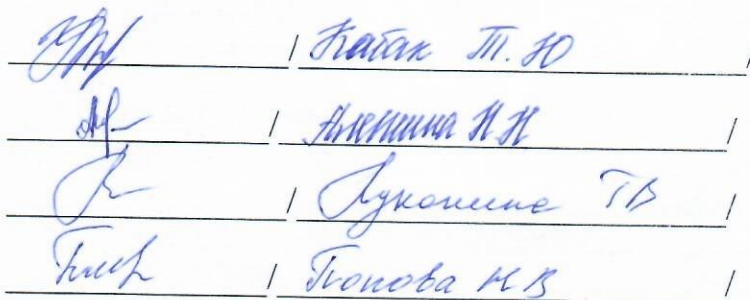 / Катак Т.Ю /
/ Аленина Н Н /
/ Луконина ТВ /
/ Попова Н В /